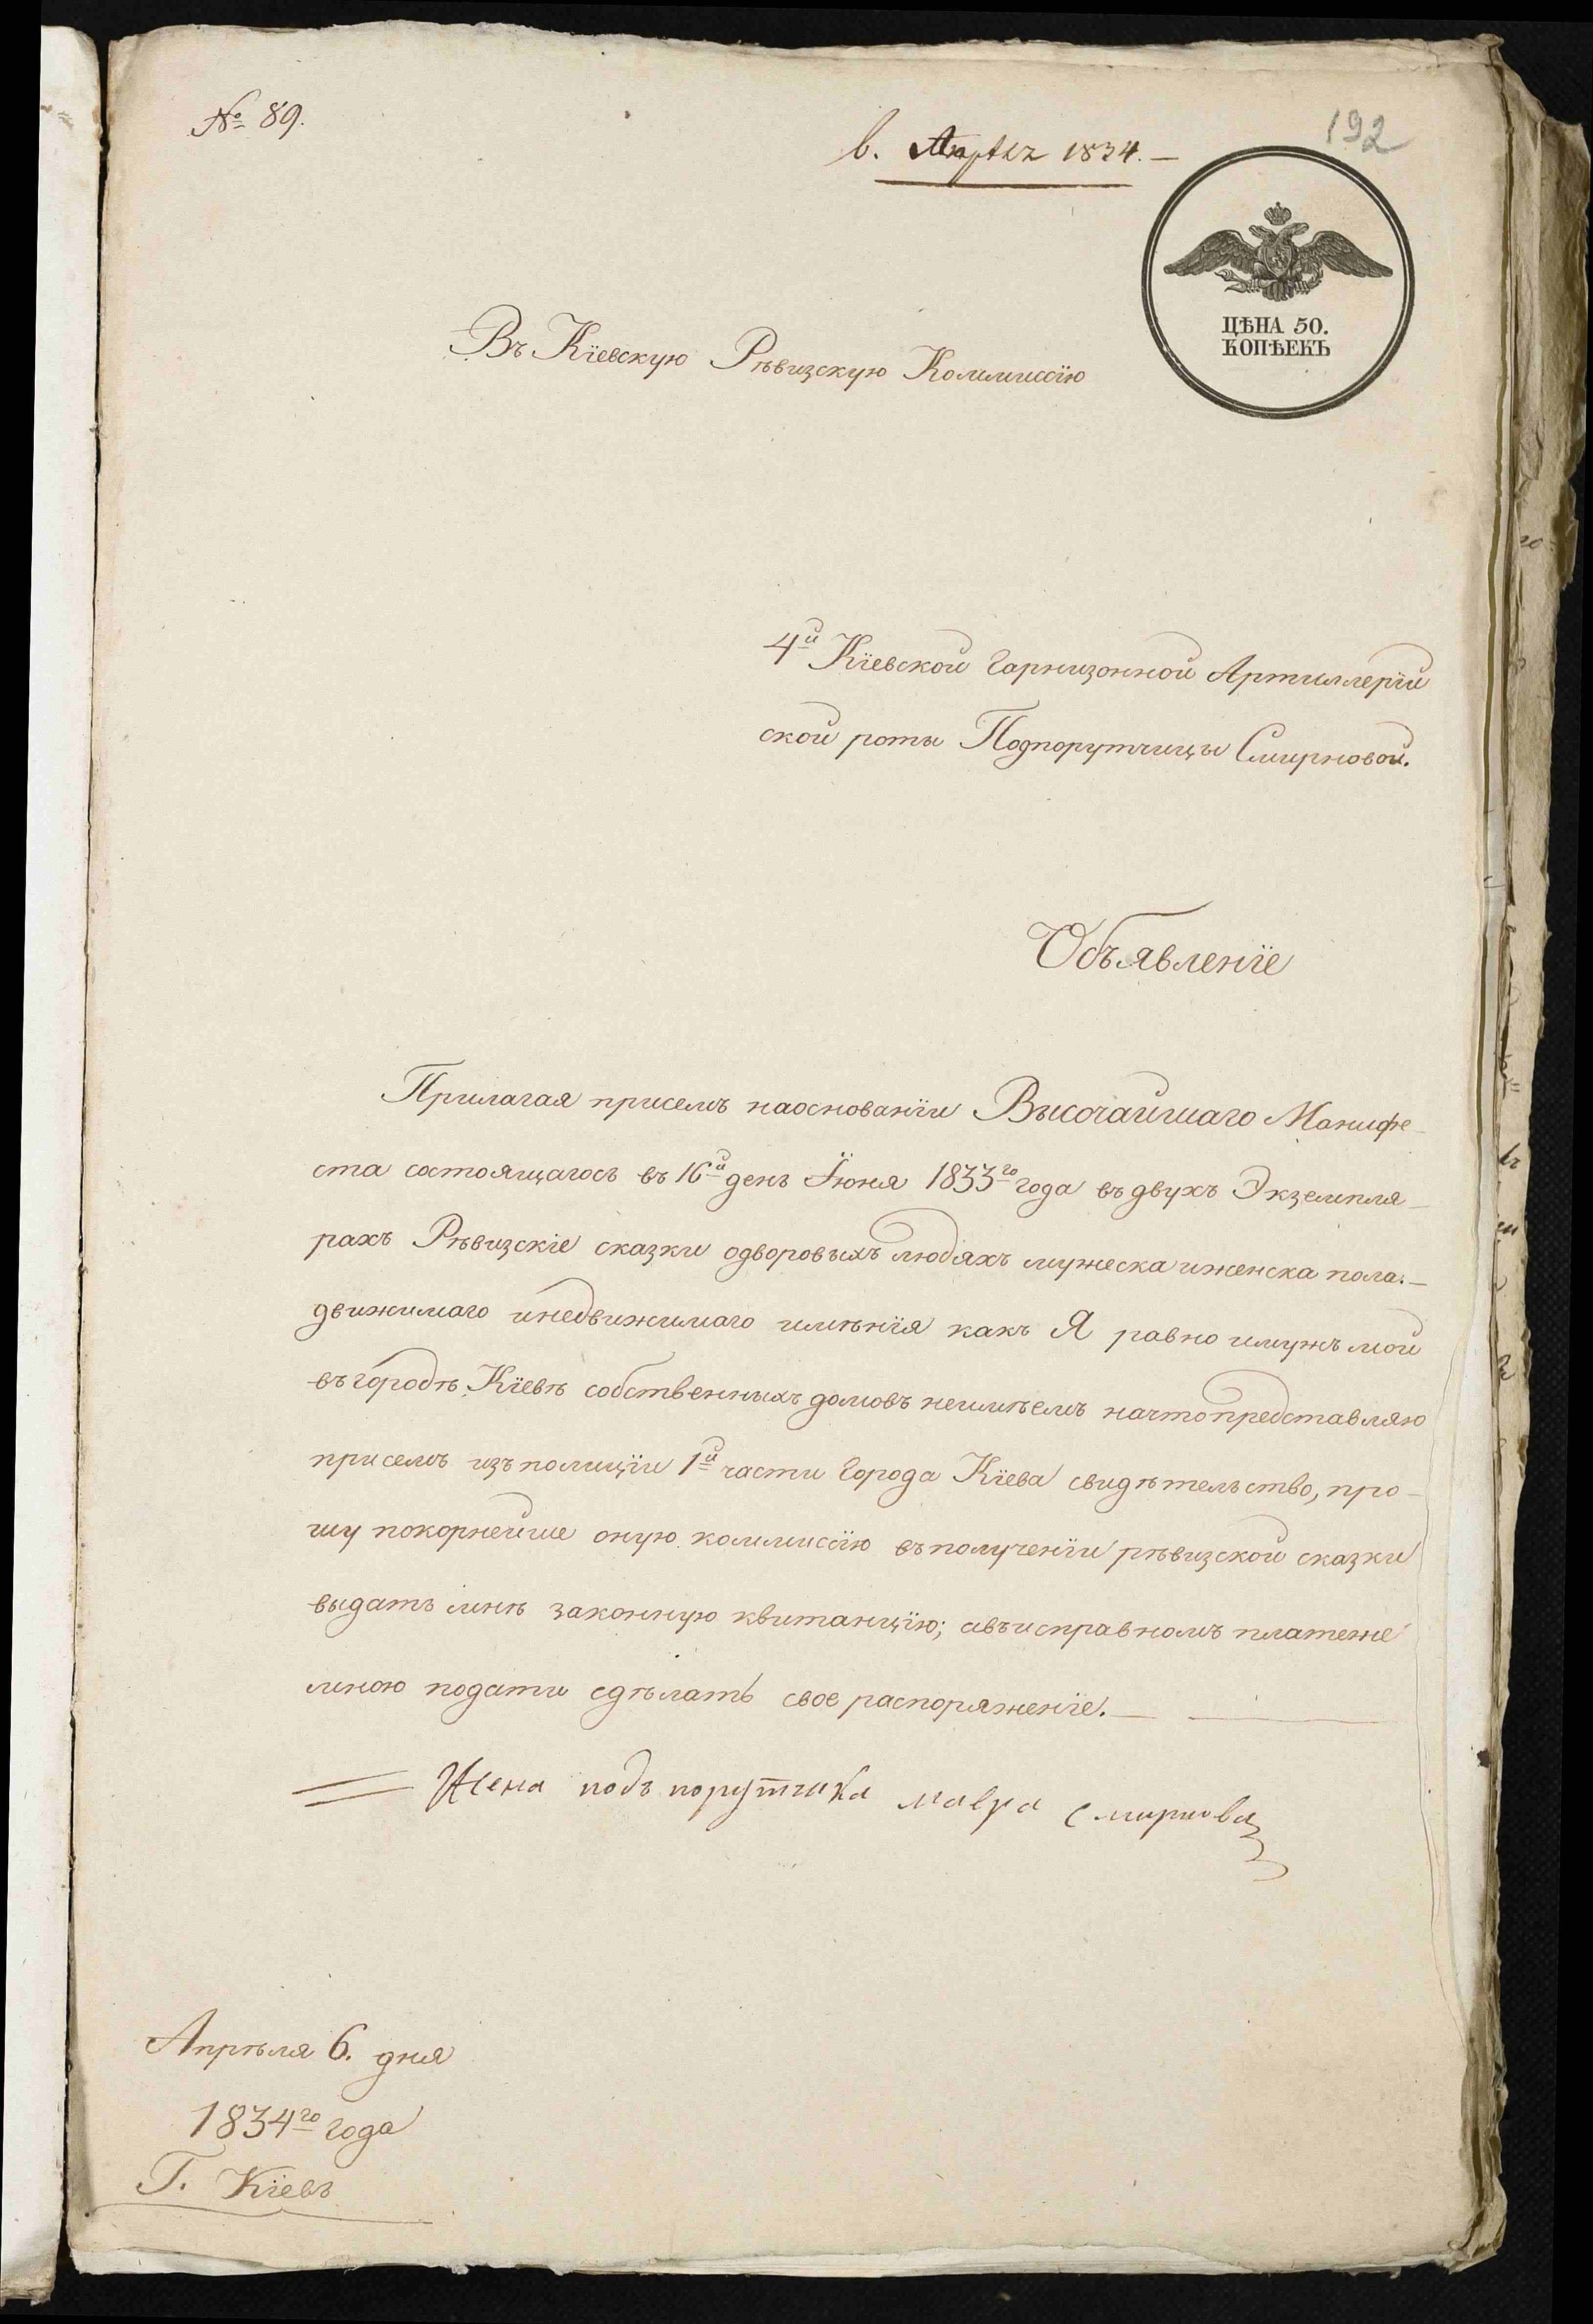 № 89.
192
6. Апрѣля 1834.—
ЦѢНА 50.
КОПѢЕКЪ
Въ Кіевскую Рѣвизскую Коммиссію
4й Кіевской гарнизонной Артиллерій
ской роты Подпорутчицы Смирновой.
Объявленіе
Прилагая присемъ наоснованіи Высочайшаго Манифе
ста состоящагось въ 16й день Іюня 1833го года въ двухъ Экземпля
рахъ Рѣвизскіе сказки одворовыхъ людяхъ мужеска иженска пола.—
движимаго инедвижимаго имѣнія какъ Я равно имужъ мой
въ городѣ Кіевѣ собственныхъ домовъ неимѣемъ начто представляю
присемъ изъ полиціи 1й части города Кіева свидѣтельство, про-
шу покорнейше оную коммиссію въ полученіи рѣвизской сказки
выдать мнѣ законную квитанцію; авъ исправномъ платеже
мною подати сдѣлать свое распоряженіе.—
Жена подъ порутчика мавра смирнова
Апрѣля 6. дня
1834го года
Г. Кіевъ